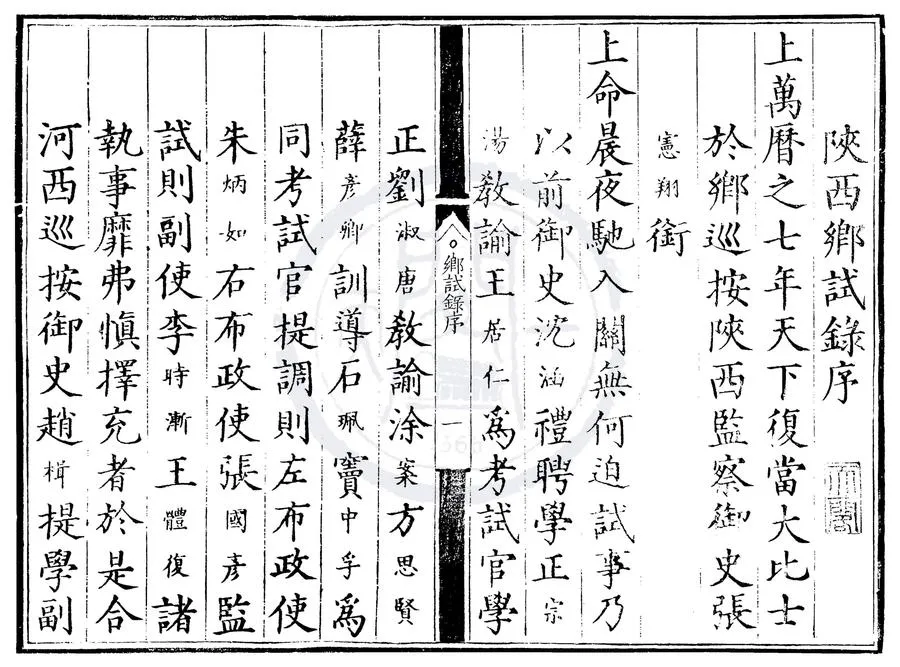 陝西鄉試錄序
上萬曆之七年天下復當大比士
於鄉巡按陝西監察御史張
憲翔銜
上命晨夜馳入關無何迫試事乃
以前御史沈涵禮聘學正宗
湯敎諭王居仁爲考試官學
鄉試錄序 一
正劉淑唐敎諭涂案方思賢
薛彥卿訓導石珮竇中孚爲
同考試官提調則左布政使
朱炳如右布政使張國彥監
試則副使李時漸王體復諸
執事靡弗愼擇充者於是合
河西巡按御史趙楫提學副